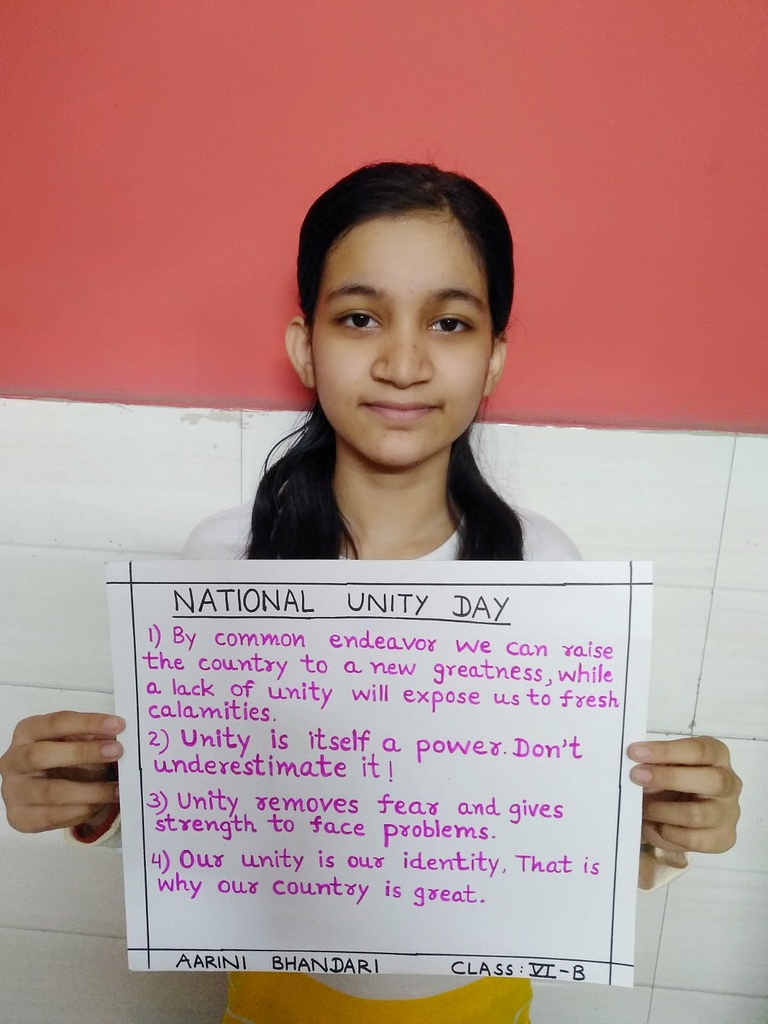 NATIONAL UNITY DAY
1) By common endeavor we can raise
the country to a new greatness, while
a lack of unity will expose us to fresh
calamities.
2) Unity is itself a power. Don't
underestimate it!
3) Unity removes fear and gives
strength to face problems.
4) Our unity is our identity, That is
why our country is great.
AARINI BHANDARI CLASS: VI-B